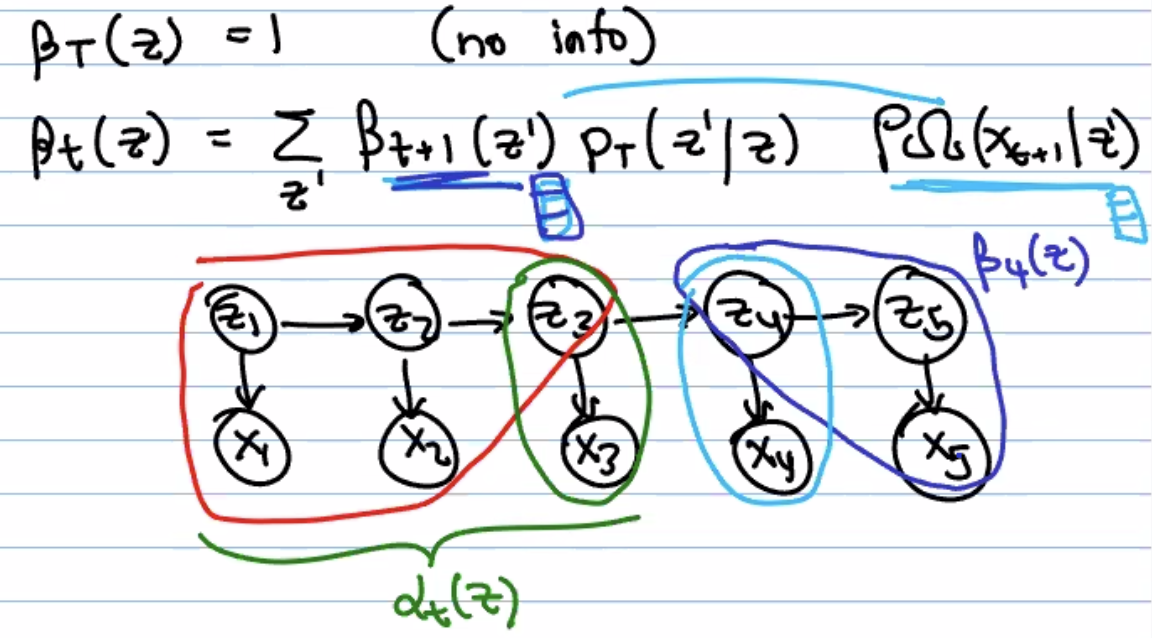 β_T(z) = 1 (no info)
β_t(z) = Σ_z' β_{t+1}(z') p_T(z'|z) p_Ω(x_{t+1}|z')
β_4(z)
z_1 → z_2 → z_3 → z_4 → z_5
x_1 x_2 x_3 x_4 x_5
α_t(z)